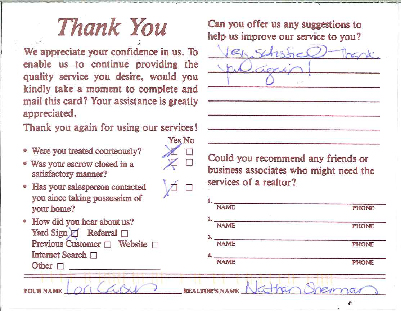 Thank You
We appreciate your confidence in us. To
enable us to continue providing the
quality service you desire, would you
kindly take a moment to complete and
mail this card? Your assistance is greatly
appreciated.
Thank you again for using our services!
Yes No
• Were you treated courteously?
• Was your escrow closed in a
satisfactory manner?
• Has your salesperson contacted
you since taking possession of
your home?
• How did you hear about us?
Yard Sign Referral
Previous Customer Website
Internet Search
Other
YOUR NAME Lori
Can you offer us any suggestions to
help us improve our service to you?
Very satisfied - Thank
you again!
Could you recommend any friends or
business associates who might need the
services of a realtor?
1.
NAME PHONE
2.
NAME PHONE
3.
NAME PHONE
4.
NAME PHONE
REALTOR'S NAME Nathan Sherman